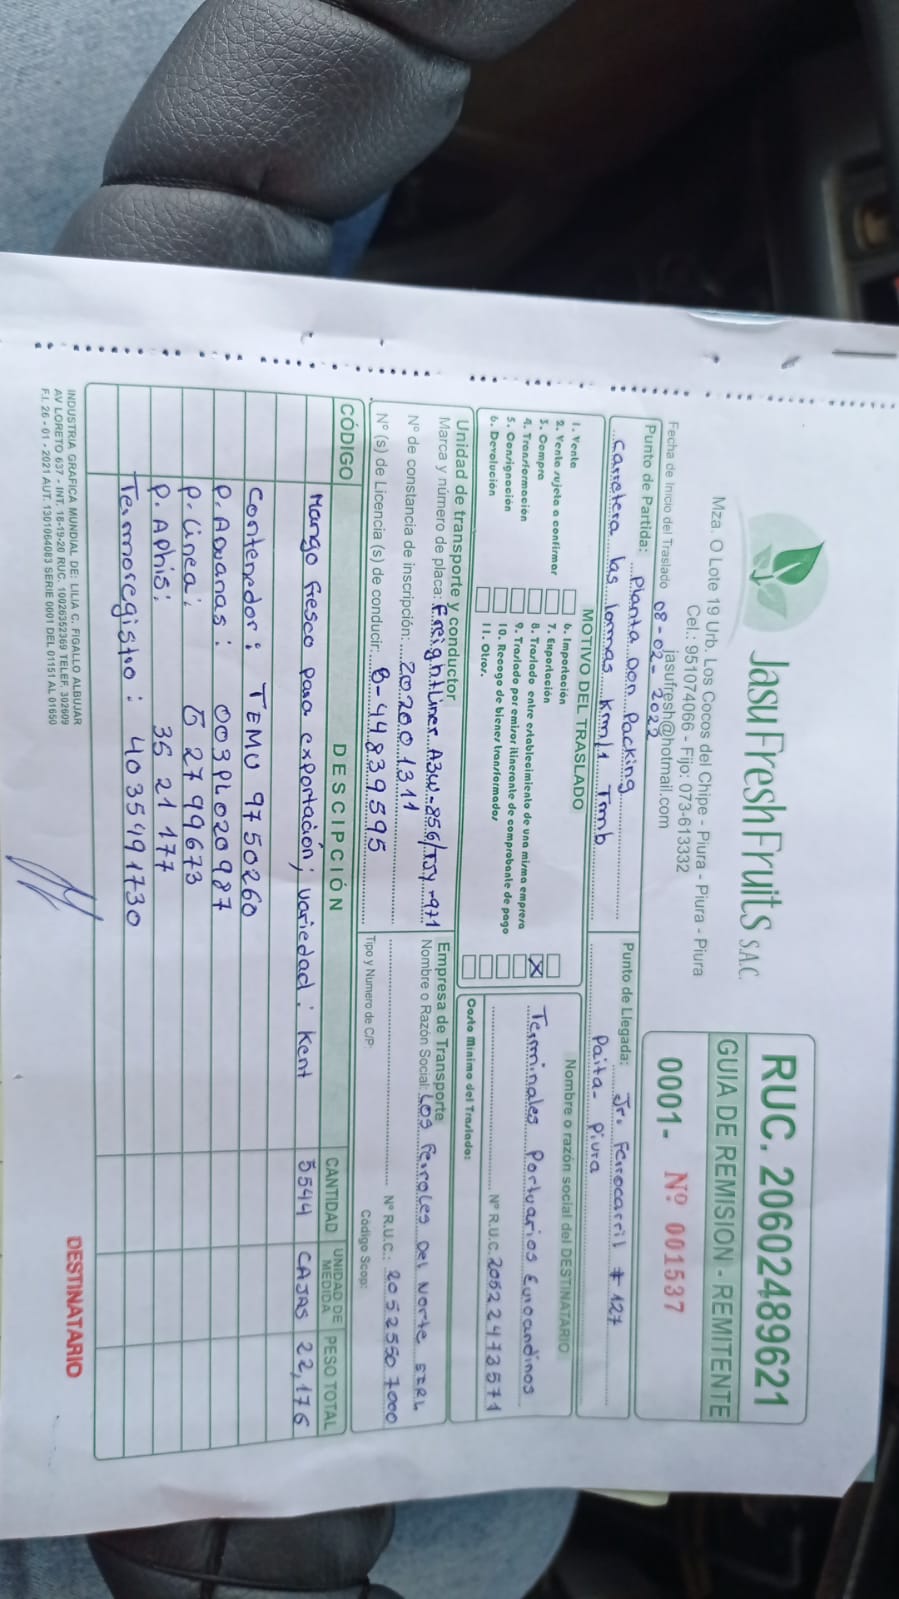 JasuFreshFruits S.A.C.
Mza. O Lote 19 Urb. Los Cocos del Chipe - Piura - Piura - Piura
Cel.: 951074066 - Fijo: 073-613332
jasufresh@hotmail.com
RUC. 20602489621
GUIA DE REMISION - REMITENTE
0001- Nº 001537
Fecha de Inicio del Traslado 08-02-2022
Punto de Partida: Planta Don Packing
Carretera las lomas Km/1 Tmb
Punto de Llegada: Jr. Ferrocarril # 127
Paita - Piura
MOTIVO DEL TRASLADO
1. Venta
2. Venta sujeta a confirmar
3. Compra
4. Transformación
5. Consignación
6. Devolución
6. Importación
7. Exportación
8. Traslado entre establecimiento de una misma empresa
9. Traslado por emisor itinerante de comprobante de pago
10. Recogo de bienes transformados
11. Otros.
X
Nombre o razón social del DESTINATARIO
Terminales Portuarios Euroandinos
Nº R.U.C. 20522473571
Costo Mínimo del Traslado:
Unidad de transporte y conductor
Marca y número de placa: Freightliner A3W-856/TJY-971
Nº de constancia de inscripción: 20200 1311
Nº (s) de Licencia (s) de conducir: B-44839595
Empresa de Transporte
Nombre o Razón Social: Los Ferroles Del Norte EIRL
Nº R.U.C.: 20525507000
Tipo y Numero de C/P:
Código Scop:
CÓDIGO DESCIPCIÓN CANTIDAD UNIDAD DE MEDIDA PESO TOTAL
Mango fresco para exportación; variedad: Kent 5544 CAJAS 22,176
Contenedor: TEMU 9750260
P. Aduanas: 003PL020987
P. Linea: 62799673
P. Aphis: 3521177
Termoregistro: 4035491730
INDUSTRIA GRAFICA MUNDIAL DE: LILIA C. FIGALLO ALBUJAR
AV LORETO 637 - INT. 18-19-20 RUC. 10026352369 TELEF. 302609
F.I. 26 - 01 - 2021 AUT. 1301064083 SERIE 0001 DEL 01151 AL 01650
DESTINATARIO